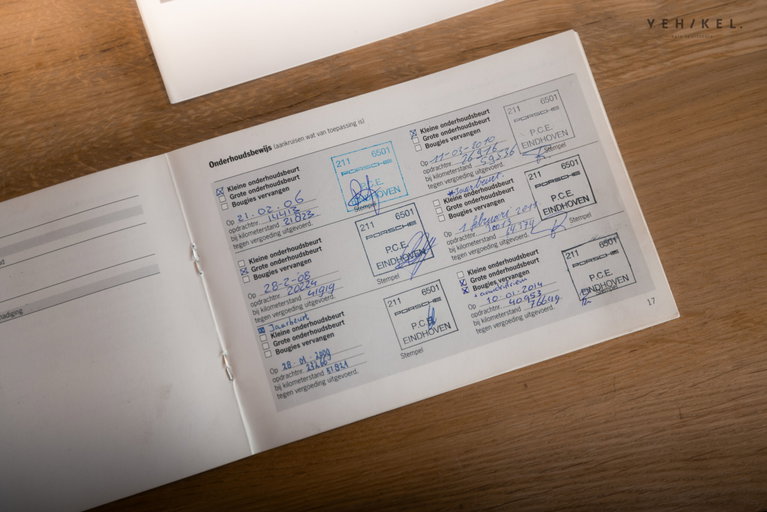 YEHIKEL.
Onderhoudsbewijs (aankruisen wat van toepassing is)
Kleine onderhoudsbeurt
Grote onderhoudsbeurt
Bougies vervangen
Op 21.02.06
opdrachtnr. 14413
bij kilometerstand 21823
tegen vergoeding uitgevoerd.
211 6501
PORSCHE
P.C.E.
EINDHOVEN
Stempel
Kleine onderhoudsbeurt
Grote onderhoudsbeurt
Bougies vervangen
Op 28-2-08
opdrachtnr. 20224
bij kilometerstand 41919
tegen vergoeding uitgevoerd.
211 6501
PORSCHE
P.C.E.
EINDHOVEN
Stempel
Jaarbeurt
Kleine onderhoudsbeurt
Grote onderhoudsbeurt
Bougies vervangen
Op 28.01.2009
opdrachtnr.
bij kilometerstand 51821
tegen vergoeding uitgevoerd.
211 6501
PORSCHE
P.C.E.
EINDHOVEN
Stempel
Kleine onderhoudsbeurt
Grote onderhoudsbeurt
Bougies vervangen
Op 11-03-2010
opdrachtnr. 26916
bij kilometerstand 59536
tegen vergoeding uitgevoerd.
211 6501
PORSCHE
P.C.E.
EINDHOVEN
Jaarbeurt
Kleine onderhoudsbeurt
Grote onderhoudsbeurt
Bougies vervangen
Op 1 februari
opdrachtnr.
bij kilometerstand
tegen vergoeding uitgevoerd.
211 6501
PORSCHE
P.C.E.
EINDHOVEN
Stempel
Kleine onderhoudsbeurt
Grote onderhoudsbeurt
Bougies vervangen
Op 10-01-2014
opdrachtnr. 40953
bij kilometerstand 76649
tegen vergoeding uitgevoerd.
211 6501
PORSCHE
P.C.E.
EINDHOVEN
17